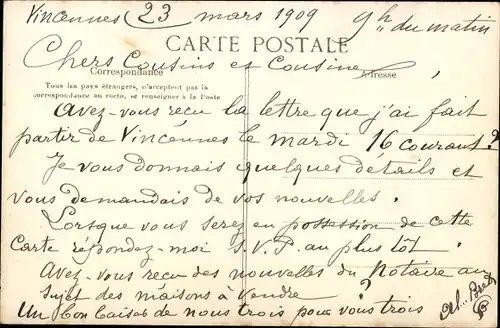 Vincennes 23 mars 1909 9h du matin
CARTE POSTALE
Chers Cousins et Cousine,
Correspondance
Adresse
Tous les pays étrangers, n'acceptent pas la
correspondance au recto, se renseigner à la Poste
Avez-vous reçu la lettre que j'ai fait
partir de Vincennes le mardi 16 courant?
Je vous donnais quelques détails et
vous demandais de vos nouvelles.
Lorsque vous serez en possession de cette
Carte répondez-moi S.V.P. au plus tôt.
Avez-vous reçu des nouvelles du Notaire au
sujet des maisons à Vendre ?
Un bon baiser de nous trois pour vous trois